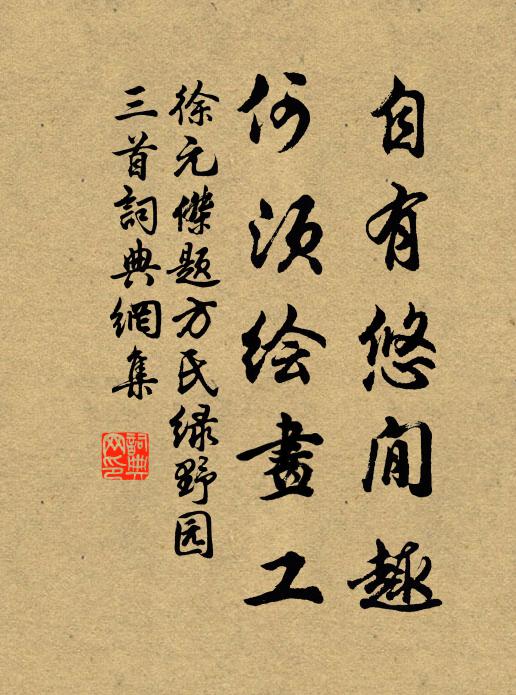 自有悠闲趣
何须绘畫工
徐元傑题方氏绿野园
三首詞典網集
詞典网印